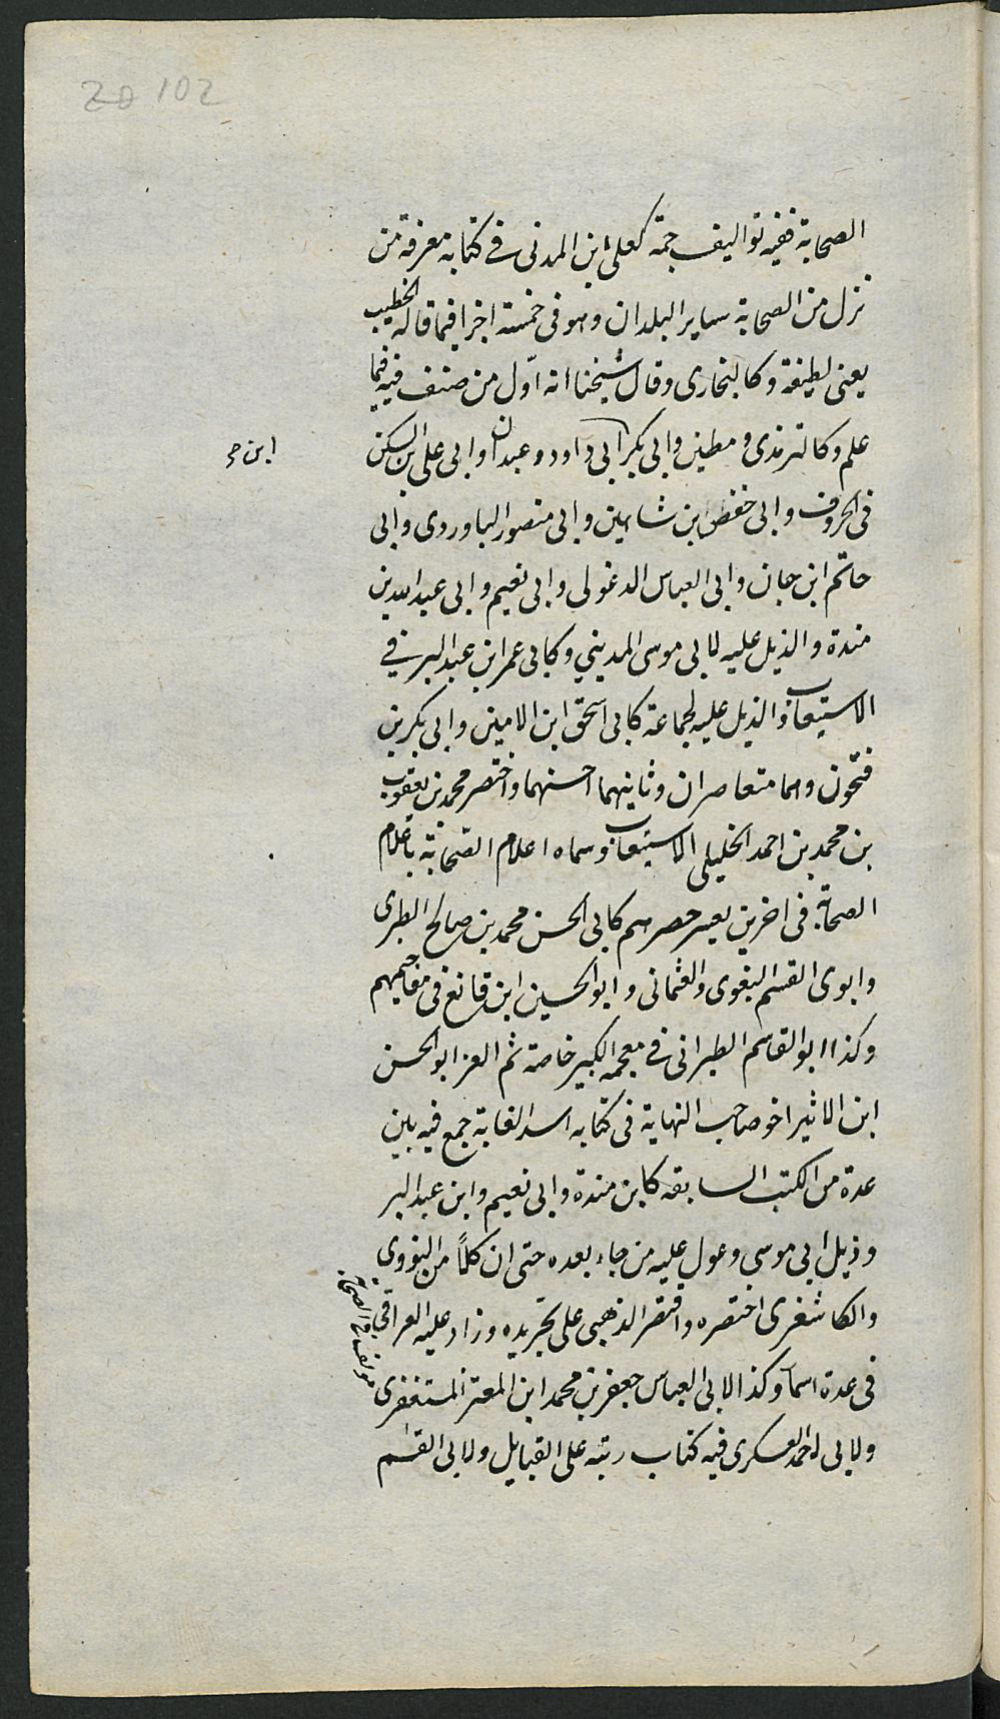 20 102
الصحابة ففيه تواليف جمة كعلي ابن المدنى في كتابه معرفة من
نزل من الصحابة ساير البلدان وهو فى خمسة اجزا فيما قاله الخطيب
يعنى لطيفة وكالبخارى وقال شيخنا انه اول من صنف فيه فيما
علم وكالترمذى و مطين وابى بكر ابى داود وعبدان وابى على بن السكن
فى الحروف وابى حفص ابن شاهين وابى منصور الباوردى وابى
حاتم ابن حبان وابى العباس الدغولى وابى نعيم وابى عبد الله بن
مندة والذيل عليه لابى موسى المديني وكابى عمر ابن عبد البر في
الاستيعاب والذيل عليه لجماعة كابى اسحق ابن الامين وابى بكر بن
فتحون وهما متعاصران وثانيهما احسنهما واختصر محمد بن يعقوب
بن محمد بن احمد الخليلى الاستيعاب وسماه اعلام الصحابة باعلام
الصحابة فى اخرين يعسر حصرهم كابى الحسن محمد بن صالح الطبرى
وابوى القسم البغوى والعثمانى وابو الحسين ابن قانع فى معاجيمهم
وكذا ابو القاسم الطبرانى في معجمه الكبير خاصة ثم العز ابو الحسن
ابن الاثير اخو صاحب النهاية فى كتابه اسد الغابة جمع فيه بين
عدة من الكتب السابقه كابن مندة وابى نعيم وابن عبد البر
وذيل ابى موسى وعول عليه من جاء بعده حتى ان كلاً من النووى
والكاشغرى اختصره واقتصر الذهبى على تجريده وزاد عليه العراقي
فى عدة اسماء وكذا لابى العباس جعفر بن محمد ابن المعتز المستغفرى
ولابى احمد العسكرى فيه كتاب رتبه على القبايل ولابى القسم